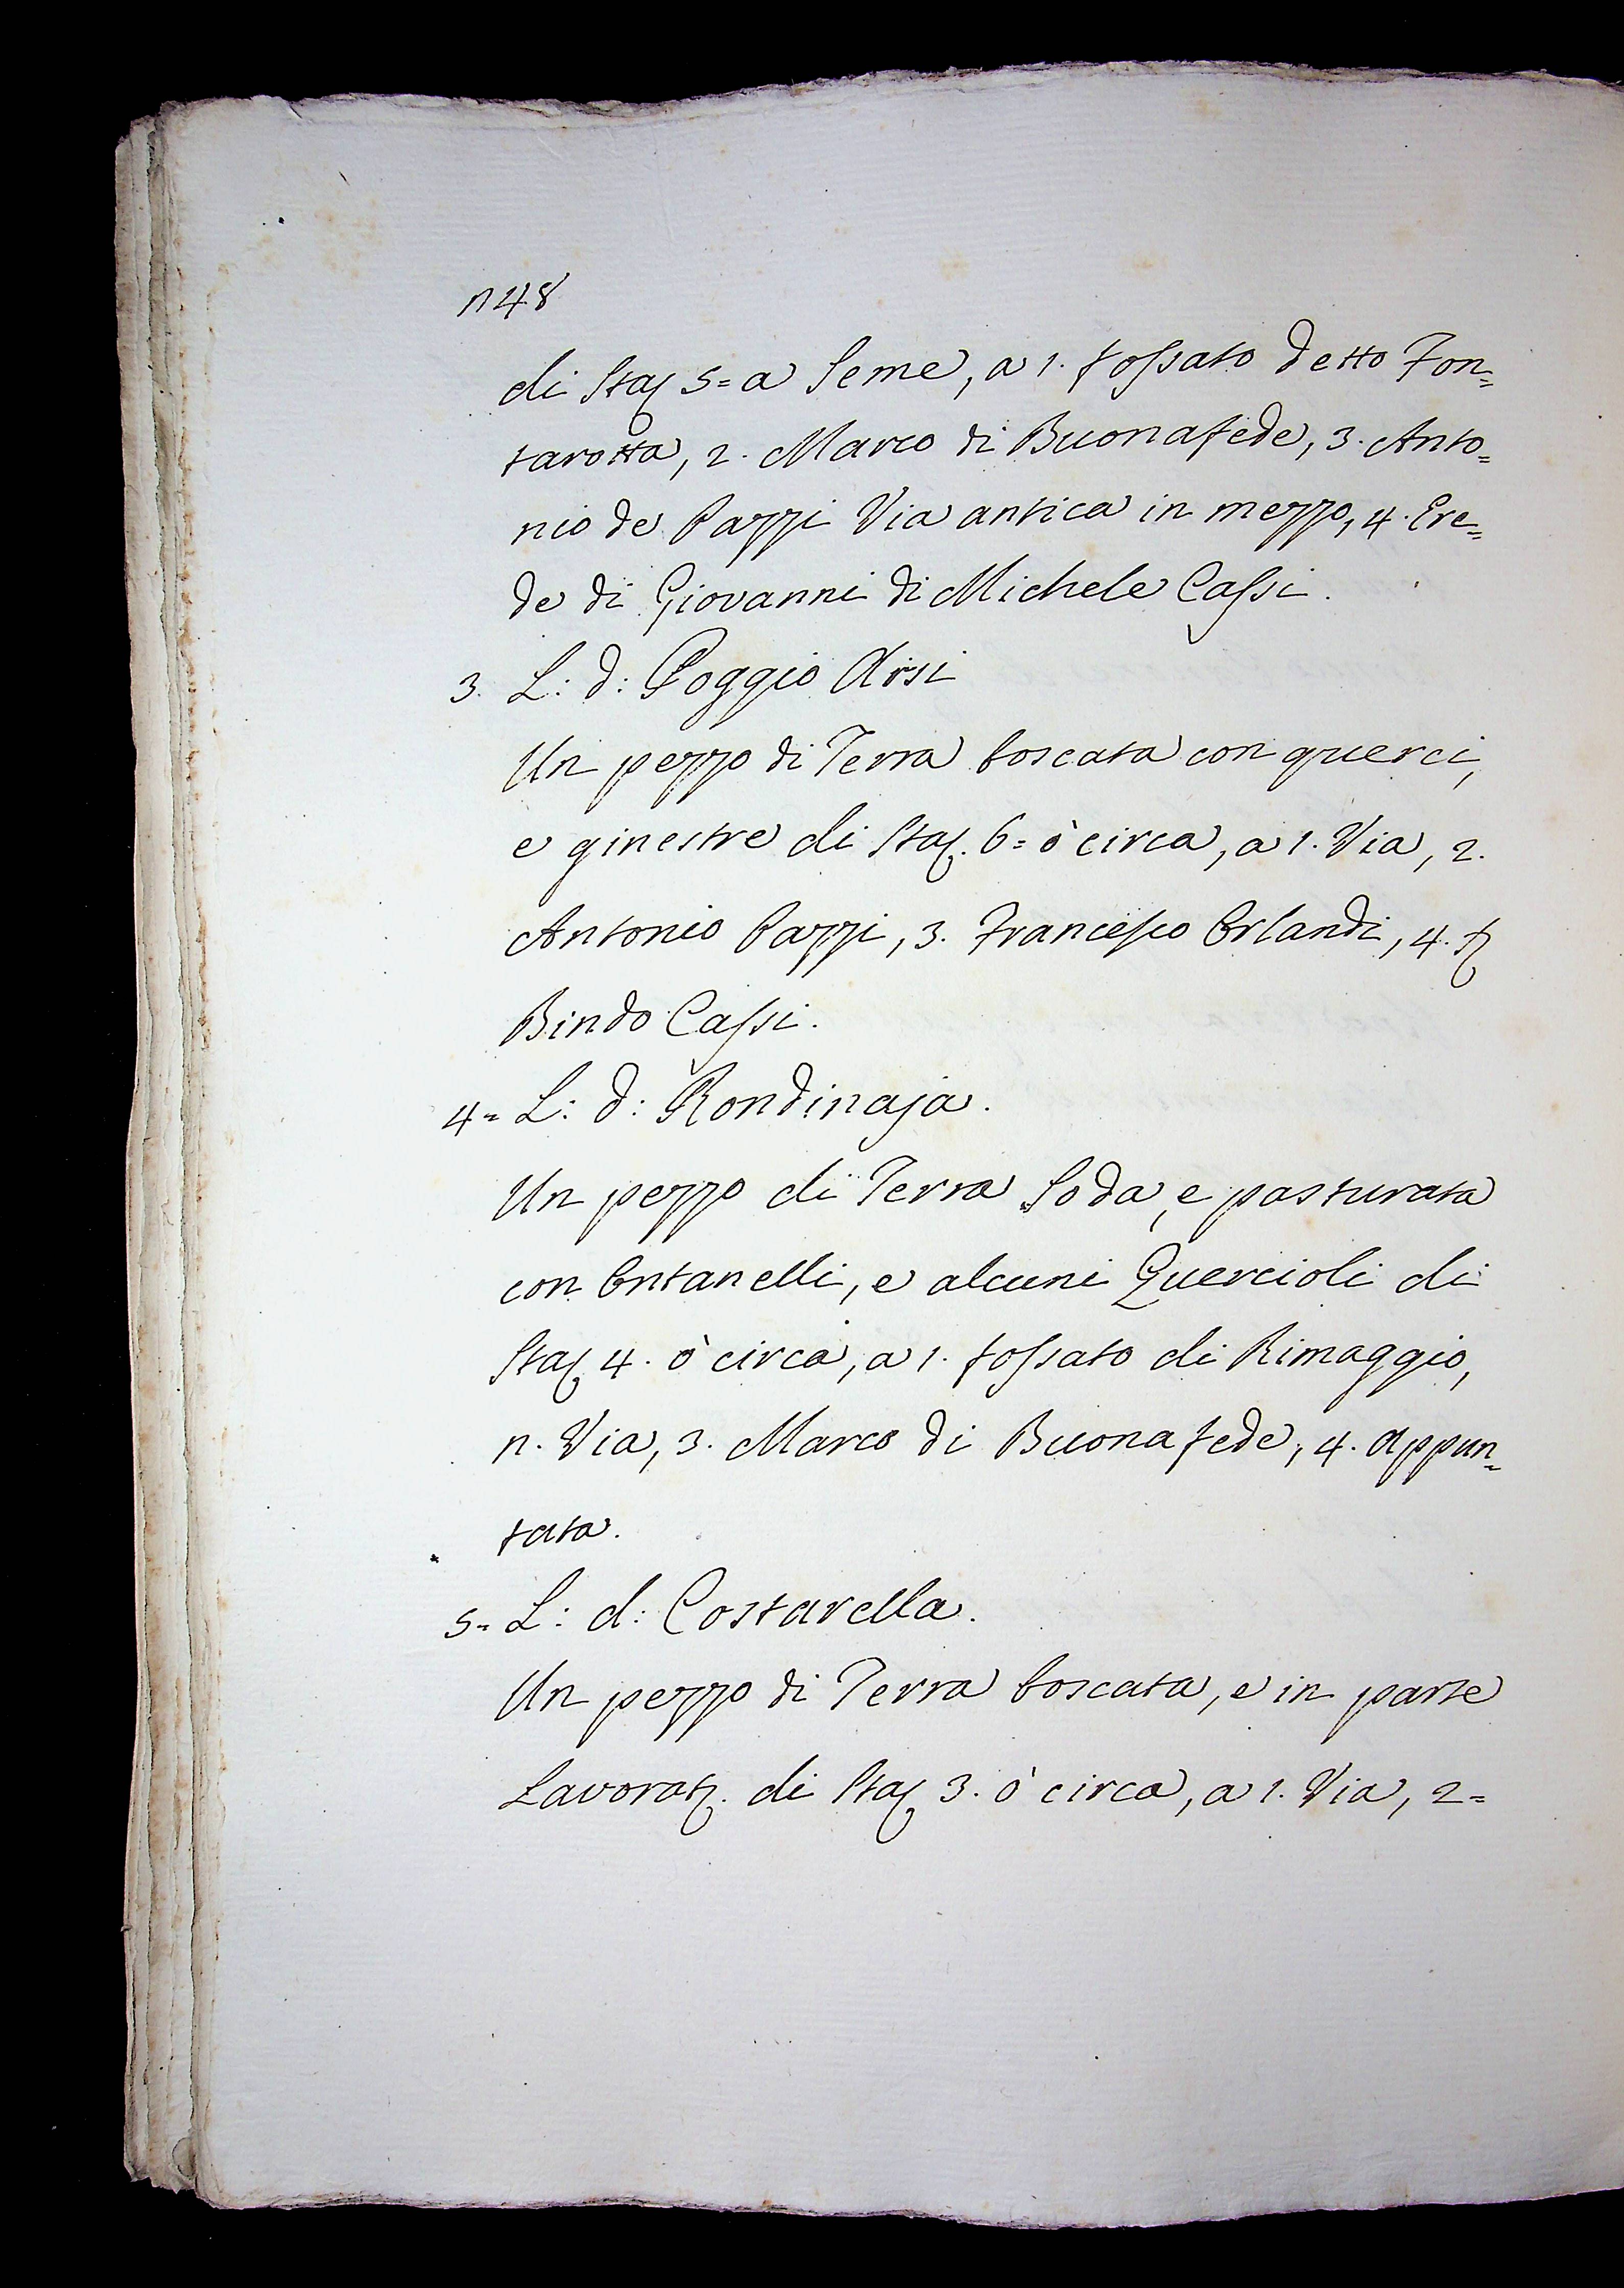 n48
di Staj 5= a Seme, a 1. fossato detto Fon=
tarotta, 2. Marco di Buonafede, 3. Anto=
nio de Pazzi Via antica in mezzo, 4. Ere=
de di Giovanni di Michele Cassi.
3. L: d: Poggio Arsi
Un pezzo di Terra boscata con querci,
e ginestre di Staj. 6= ò circa, a 1. Via, 2.
Antonio Pazzi, 3. Francesco Orlandi, 4.
Bindo Cassi.
4= L: d: Rondinaja.
Un pezzo di Terra Soda, e pasturata
con Ontanelli, e alcuni Quercioli di
Staj 4. ò circa, a 1. fossato di Rimaggio,
n. Via, 3. Marco di Buonafede, 4. appun=
tata.
5= L: d: Costarella.
Un pezzo di Terra boscata, e in parte
Lavorat. di Staj 3. ò circa, a 1. Via, 2=